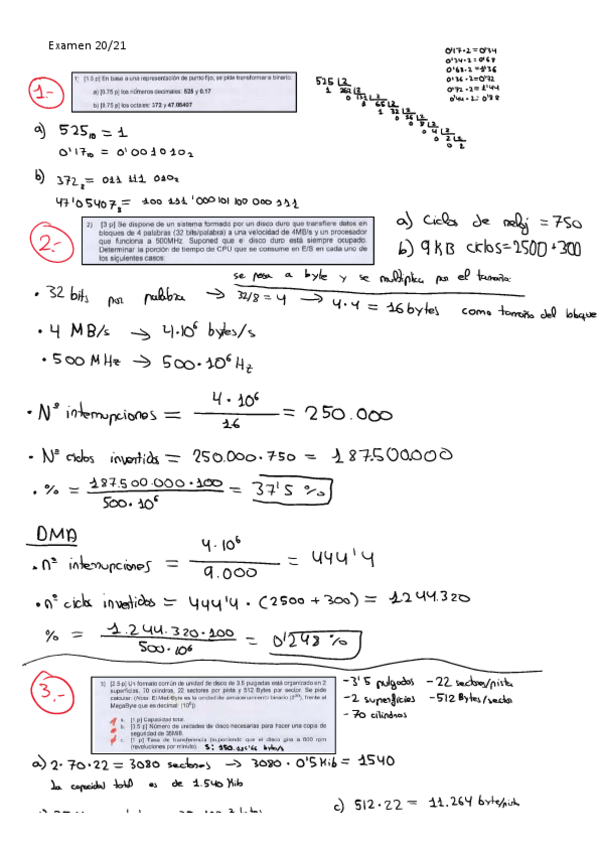 Examen 20/21
0'17·2=0'34
0'34·2=0'68
0'68·2=1'36
0'36·2=0'72
0'72·2=1'44
0'44·2=0'88
1.-
1) [1.5 p] En base a una representación de punto fijo, se pide transformar a binario:
a) [0.75 p] los números decimales: 525 y 0.17
b) [0.75 p] los octales: 372 y 47.05407
a) 525₁₀ = 1
0'17₁₀ = 0'001010₂
b) 372₈ = 011 111 010₂
47'05407₈ = 100 111 '000 101 100 000 111
2.-
2) [3 p] Se dispone de un sistema formado por un disco duro que transfiere datos en
bloques de 4 palabras (32 bits/palabra) a una velocidad de 4MB/s y un procesador
que funciona a 500MHz. Suponed que el disco duro está siempre ocupado.
Determinar la porción de tiempo de CPU que se consume en E/S en cada uno de
los siguientes casos:
a) Ciclos de reloj = 750
b) 9KB ciclos=2500+300
se pasa a byte y se multiplica por el tamaño
· 32 bits por palabra → 32/8 = 4 → 4·4 = 16 bytes como tamaño del bloque
· 4 MB/s → 4·10⁶ bytes/s
· 500 MHz → 500·10⁶ Hz
· Nº interrupciones = 4·10⁶ / 16 = 250.000
· Nº ciclos invertidos = 250.000·750 = 187.500.000
· % = 187.500.000·100 / 500·10⁶ = 37'5 %
DMA
· nº interrupciones = 4·10⁶ / 9.000 = 444'4
· nº ciclos invertidos = 444'4 · (2500+300) = 1244.320
% = 1.244.320·100 / 500·10⁶ = 0'248 %
3.-
3) [2.5 p] Un formato común de unidad de disco de 3.5 pulgadas está organizado en 2
superficies, 70 cilindros, 22 sectores por pista y 512 Bytes por sector. Se pide
calcular: (Nota: El MegaByte es la unidad de almacenamiento binario (2²⁰), frente al
MegaByte que es decimal: (10⁶))
a. [1 p] Capacidad total.
b. [0.5 p] Número de unidades de disco necesarias para hacer una copia de
seguridad de 35MiB.
c. [1 p] Tasa de transferencia (suponiendo que el disco gira a 800 rpm
(revoluciones por minuto).
-3'5 pulgadas -22 sectores/pista
-2 superficies -512 Bytes/sector
-70 cilindros
a) 2·70·22 = 3080 sectores → 3080·0'5 Kib = 1540
La capacidad total es de 1.540 Kib
c) 512·22 = 11.264 byte/pista